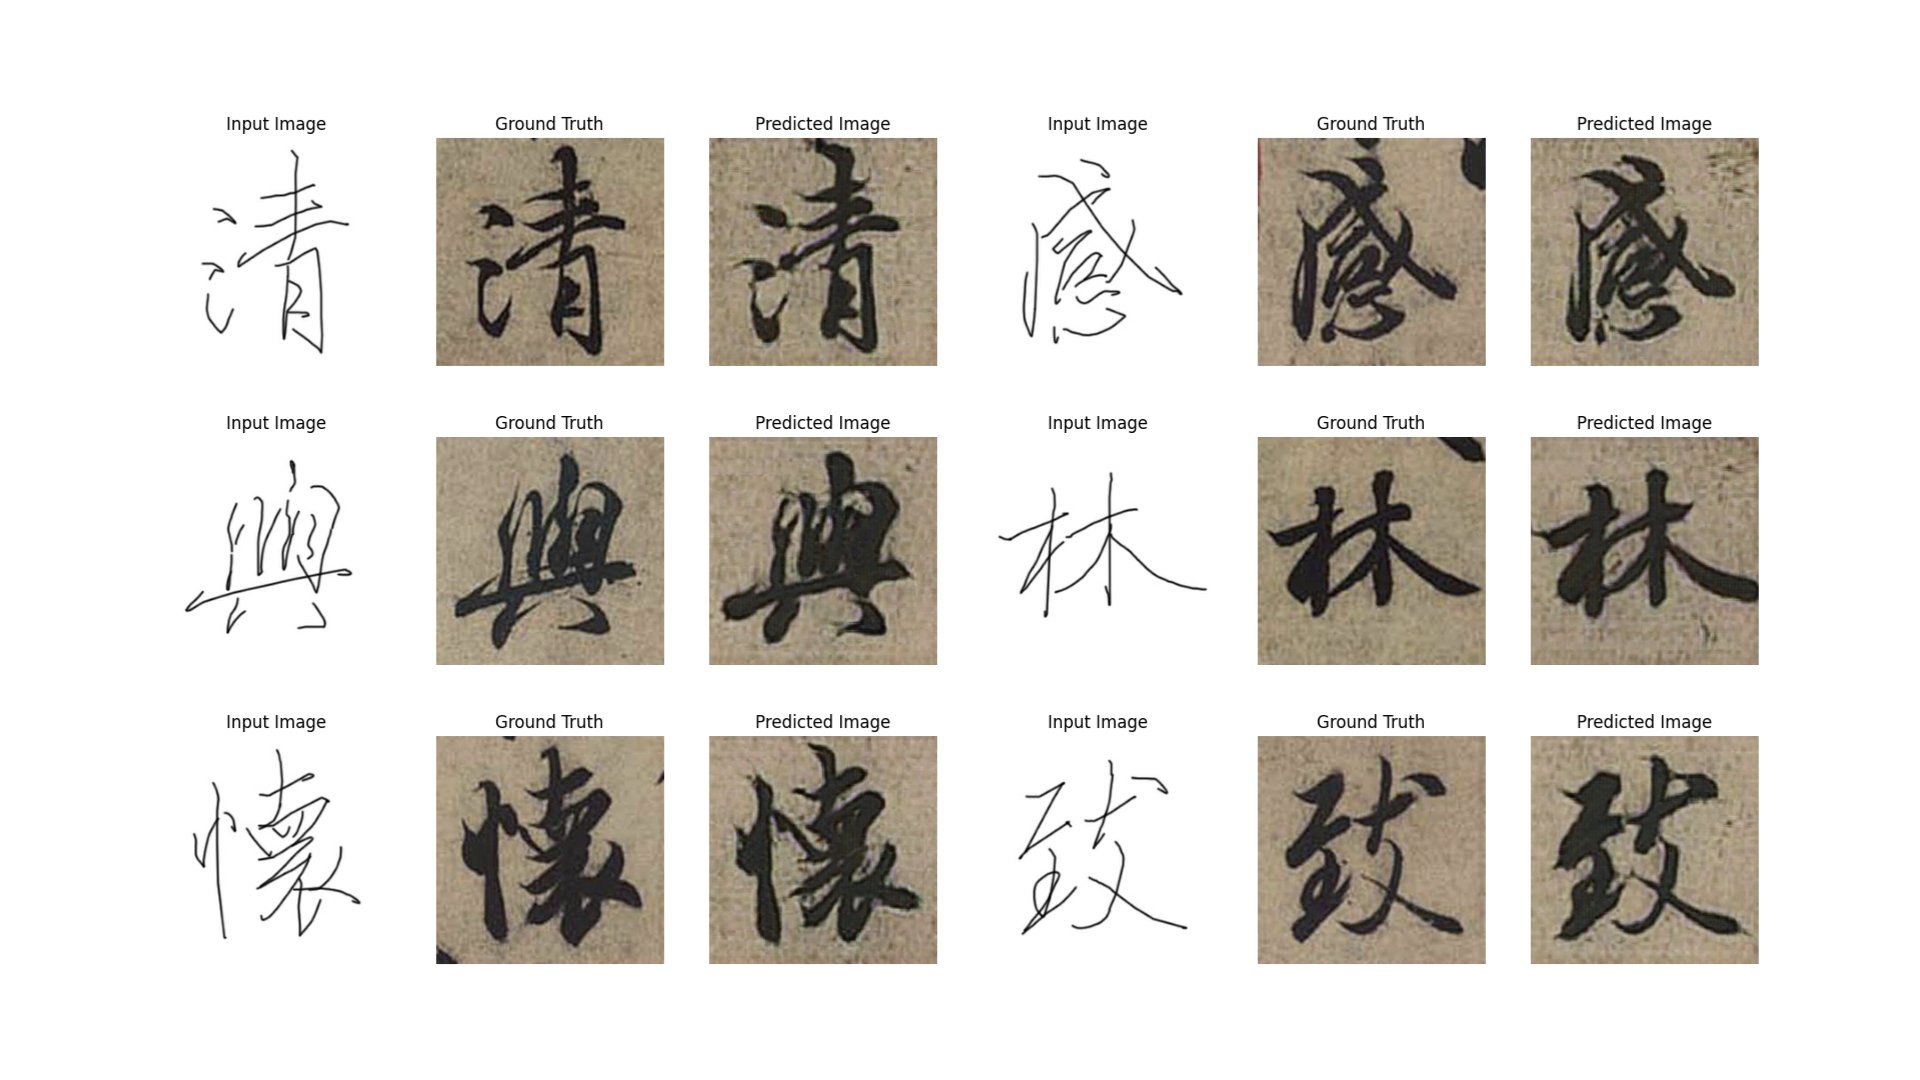 Input Image Ground Truth Predicted Image Input Image Ground Truth Predicted Image
清 清 清 感 感 感
Input Image Ground Truth Predicted Image Input Image Ground Truth Predicted Image
興 興 興 林 林 林
Input Image Ground Truth Predicted Image Input Image Ground Truth Predicted Image
懷 懷 懷 致 致 致